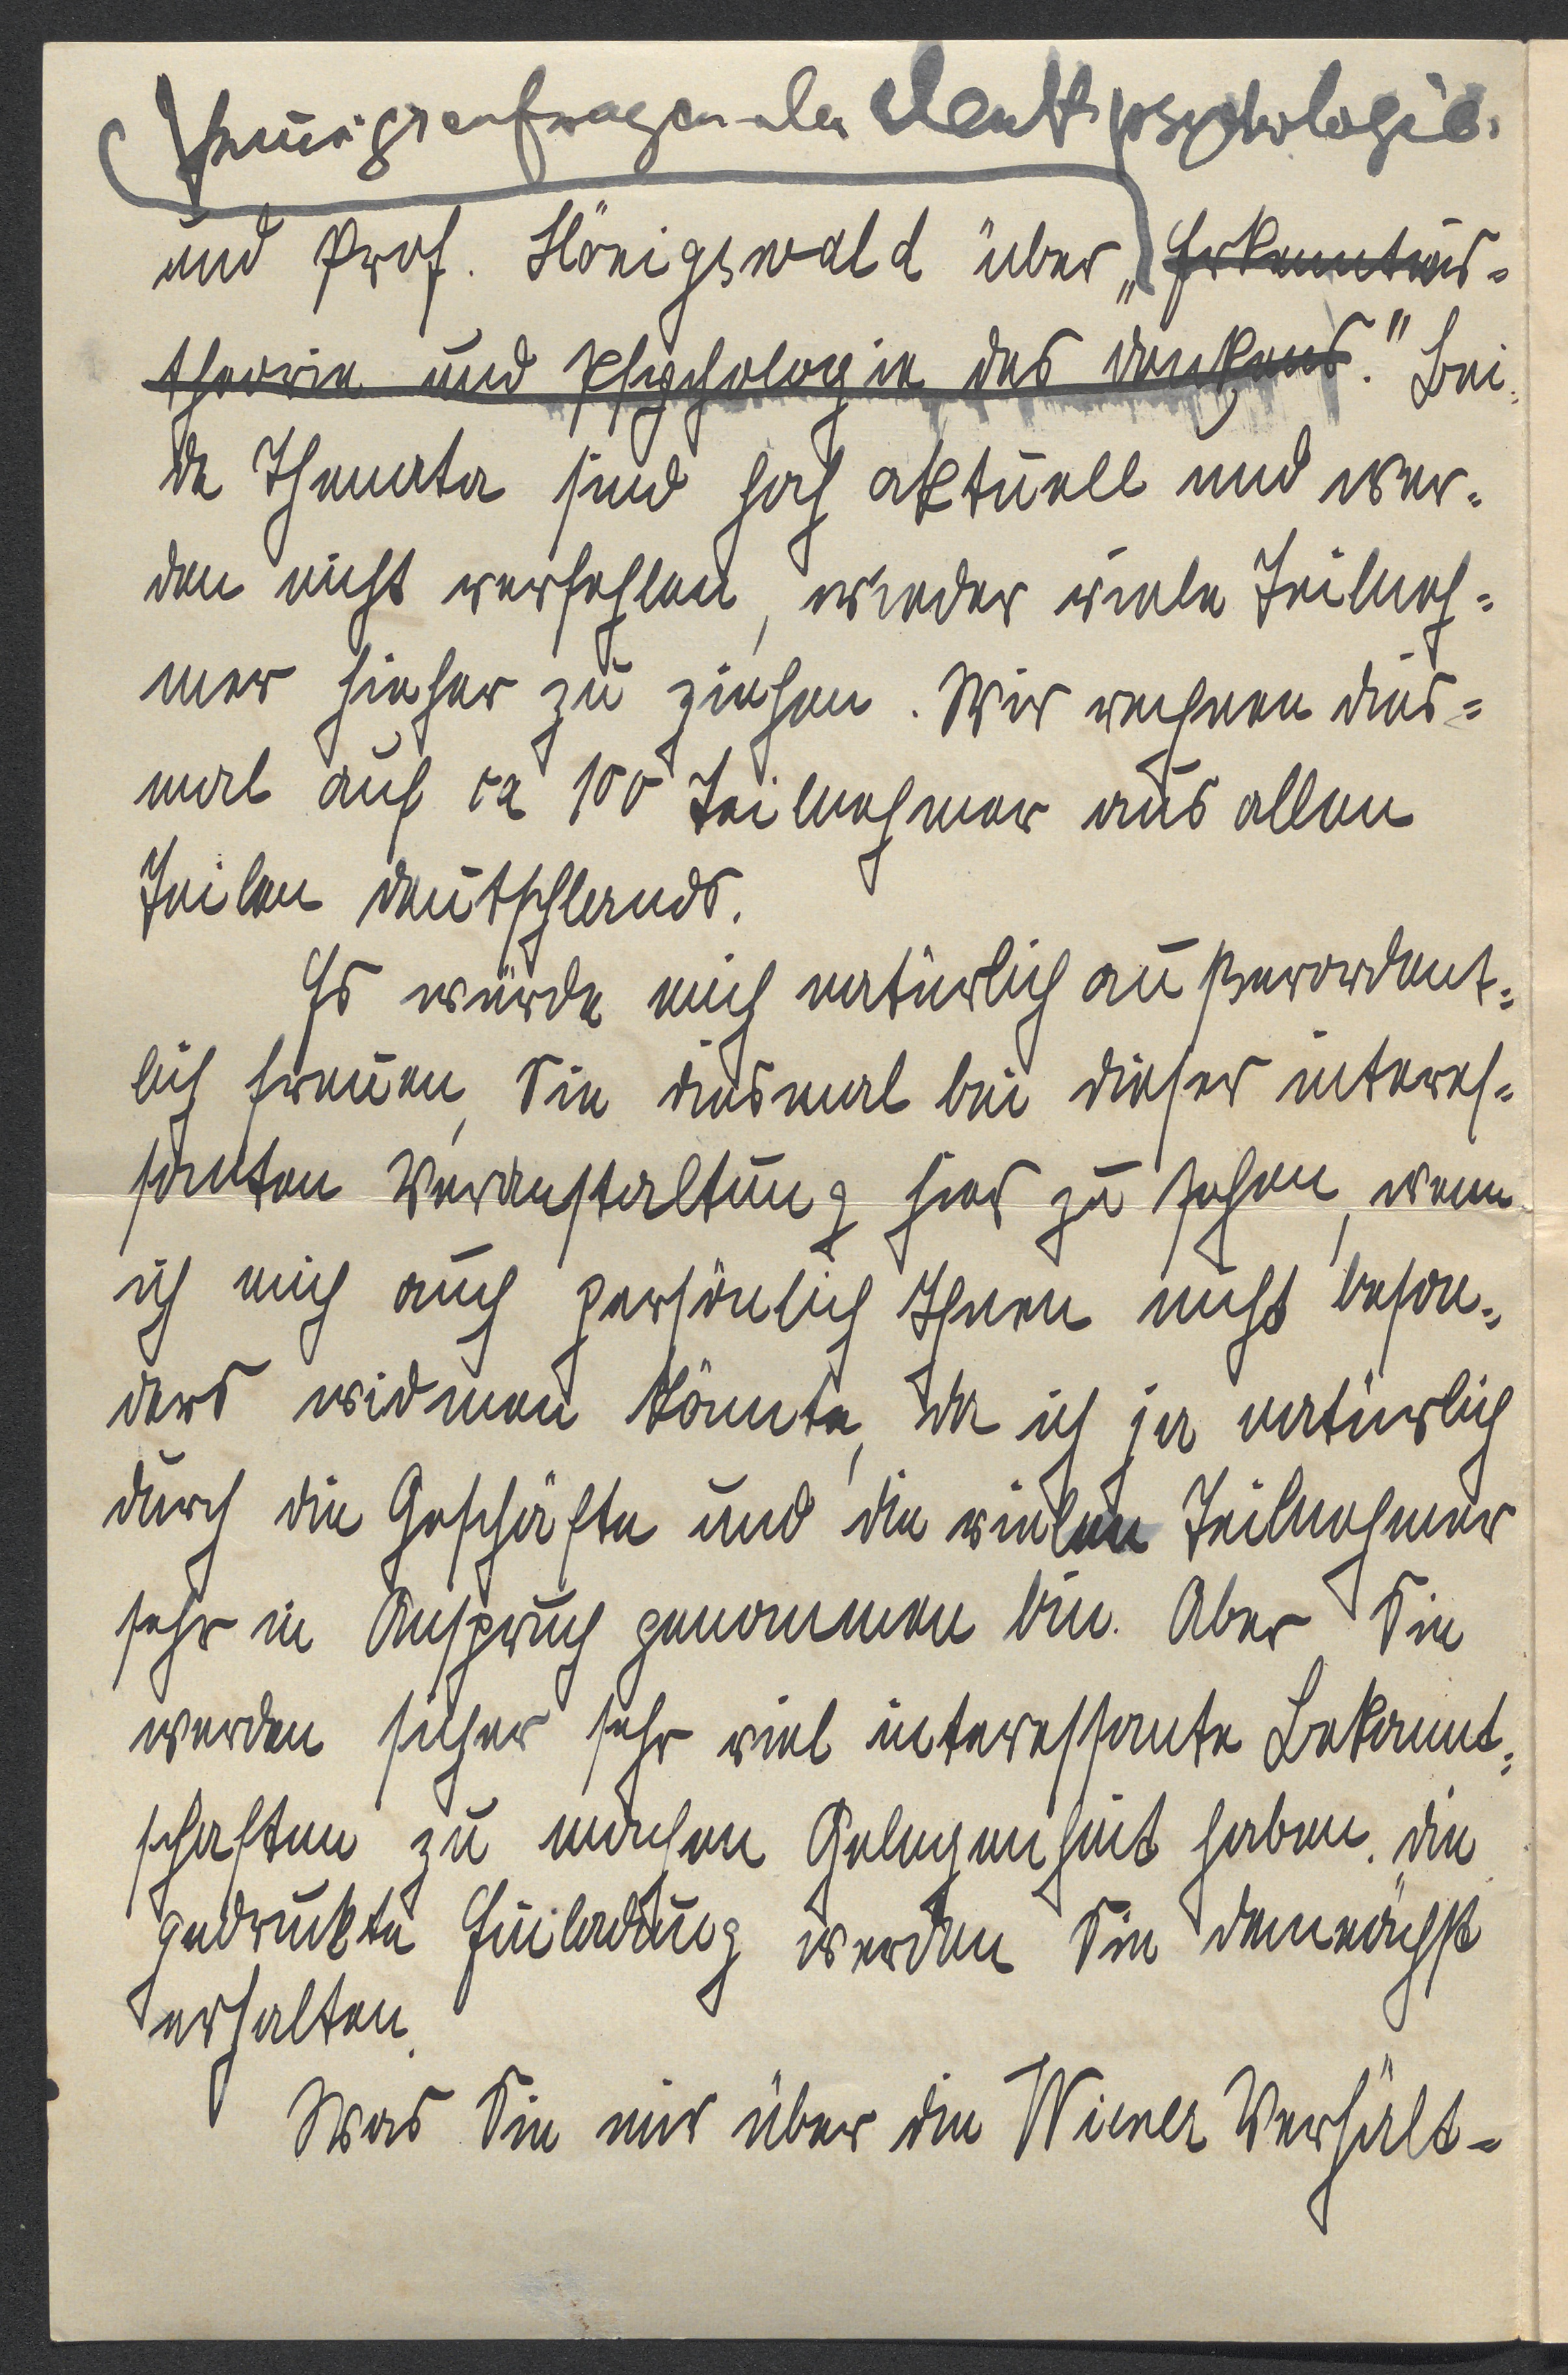 Prinzipienfragen der Denkpsychologie.
und Prof. Hönigswald über „Erkenntnis=
theorie und Psychologie des Denkens." Bei=
de Themata sind hoch aktuell und wer=
den nicht verfehlen, wieder viele Teilneh=
mer hieher zu ziehen. Wir rechnen dies=
mal auf ca 100 Teilnehmer aus allen
Teilen Deutschlands.
Es würde mich natürlich außerordent=
lich freuen, Sie diesmal bei dieser interes=
santen Veranstaltung hier zu sehen, wenn
ich mich auch persönlich Ihnen nicht beson=
ders widmen könnte, da ich ja natürlich
durch die Geschäfte und die vielen Teilnehmer
sehr in Anspruch genommen bin. Aber Sie
werden sicher sehr viel interessante Bekannt=
schaften zu machen Gelegenheit haben. Die
gedruckte Einladung werden Sie demnächst
erhalten.
Was Sie mir über die Wiener Verhält=